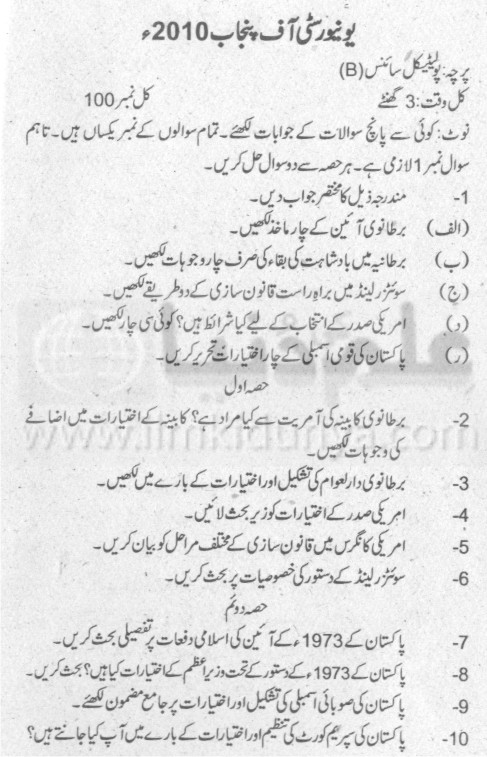 یونیورسٹی آف پنجاب 2010ء
پرچہ: پولیٹیکل سائنس (B)
کل وقت: 3 گھنٹے کل نمبر 100
نوٹ: کوئی سے پانچ سوالات کے جوابات لکھئے۔ تمام سوالوں کے نمبر یکساں ہیں۔ تاہم
سوال نمبر 1 لازمی ہے۔ ہر حصہ سے دو سوال حل کریں۔
1- مندرجہ ذیل کا مختصر جواب دیں۔
(الف) برطانوی آئین کے چار ماخذ لکھیں۔
(ب) برطانیہ میں بادشاہت کی بقاء کی صرف چار وجوہات لکھیں۔
(ج) سوئٹزرلینڈ میں براہ راست قانون سازی کے دو طریقے لکھیں۔
(د) امریکی صدر کے انتخاب کے لیے کیا شرائط ہیں؟ کوئی سی چار لکھیں۔
(ر) پاکستان کی قومی اسمبلی کے چار اختیارات تحریر کریں۔
حصہ اول
2- برطانوی کابینہ کی آمریت سے کیا مراد ہے؟ کابینہ کے اختیارات میں اضافے
کی وجوہات لکھیں۔
3- برطانوی دارلعوام کی تشکیل اور اختیارات کے بارے میں لکھیں۔
4- امریکی صدر کے اختیارات کو زیر بحث لائیں۔
5- امریکی کانگرس میں قانون سازی کے مختلف مراحل کو بیان کریں۔
6- سوئٹزرلینڈ کے دستور کی خصوصیات پر بحث کریں۔
حصہ دوئم
7- پاکستان کے 1973ء کے آئین کی اسلامی دفعات پر تفصیلی بحث کریں۔
8- پاکستان کے 1973ء کے دستور کے تحت وزیراعظم کے اختیارات کیا ہیں؟ بحث کریں۔
9- پاکستان کی صوبائی اسمبلی کی تشکیل اور اختیارات پر جامع مضمون لکھئے۔
10- پاکستان کی سپریم کورٹ کی تنظیم اور اختیارات کے بارے میں آپ کیا جانتے ہیں؟
علم کی دنیا
www.ilmkidunya.com